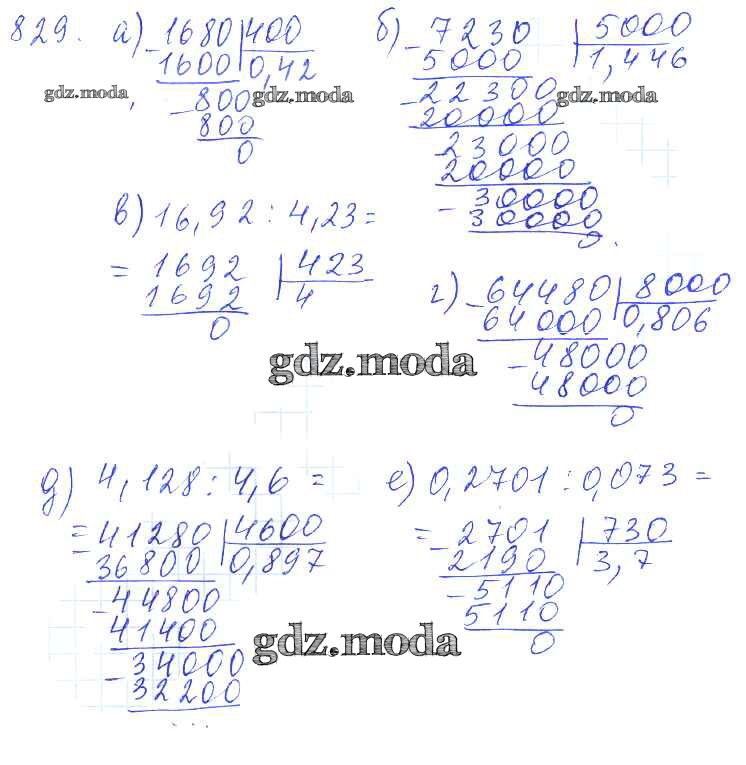 829. а) -1680 | 400
1600 | 0,42
-800
800
0
б) -7230 | 5000
5000 | 1,446
-22300
20000
-23000
20000
-30000
30000
0.
gdz.moda gdz.moda gdz.moda
в) 16,92 : 4,23 =
= 1692 | 423
1692 | 4
0
г) -64480 | 8000
64000 | 0,806
-48000
48000
0
gdz.moda
д) 4,128 : 4,6 =
= -41280 | 4600
36800 | 0,897
-44800
41400
-34000
32200
...
е) 0,2701 : 0,073 =
= -2701 | 730
2190 | 3,7
-5110
5110
0
gdz.moda